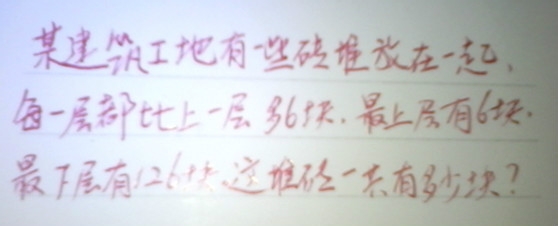 某建筑工地有一些砖堆放在一起,
每一层都比上一层多6块.最上层有6块.
最下层有126块.这堆砖一共有多少块?